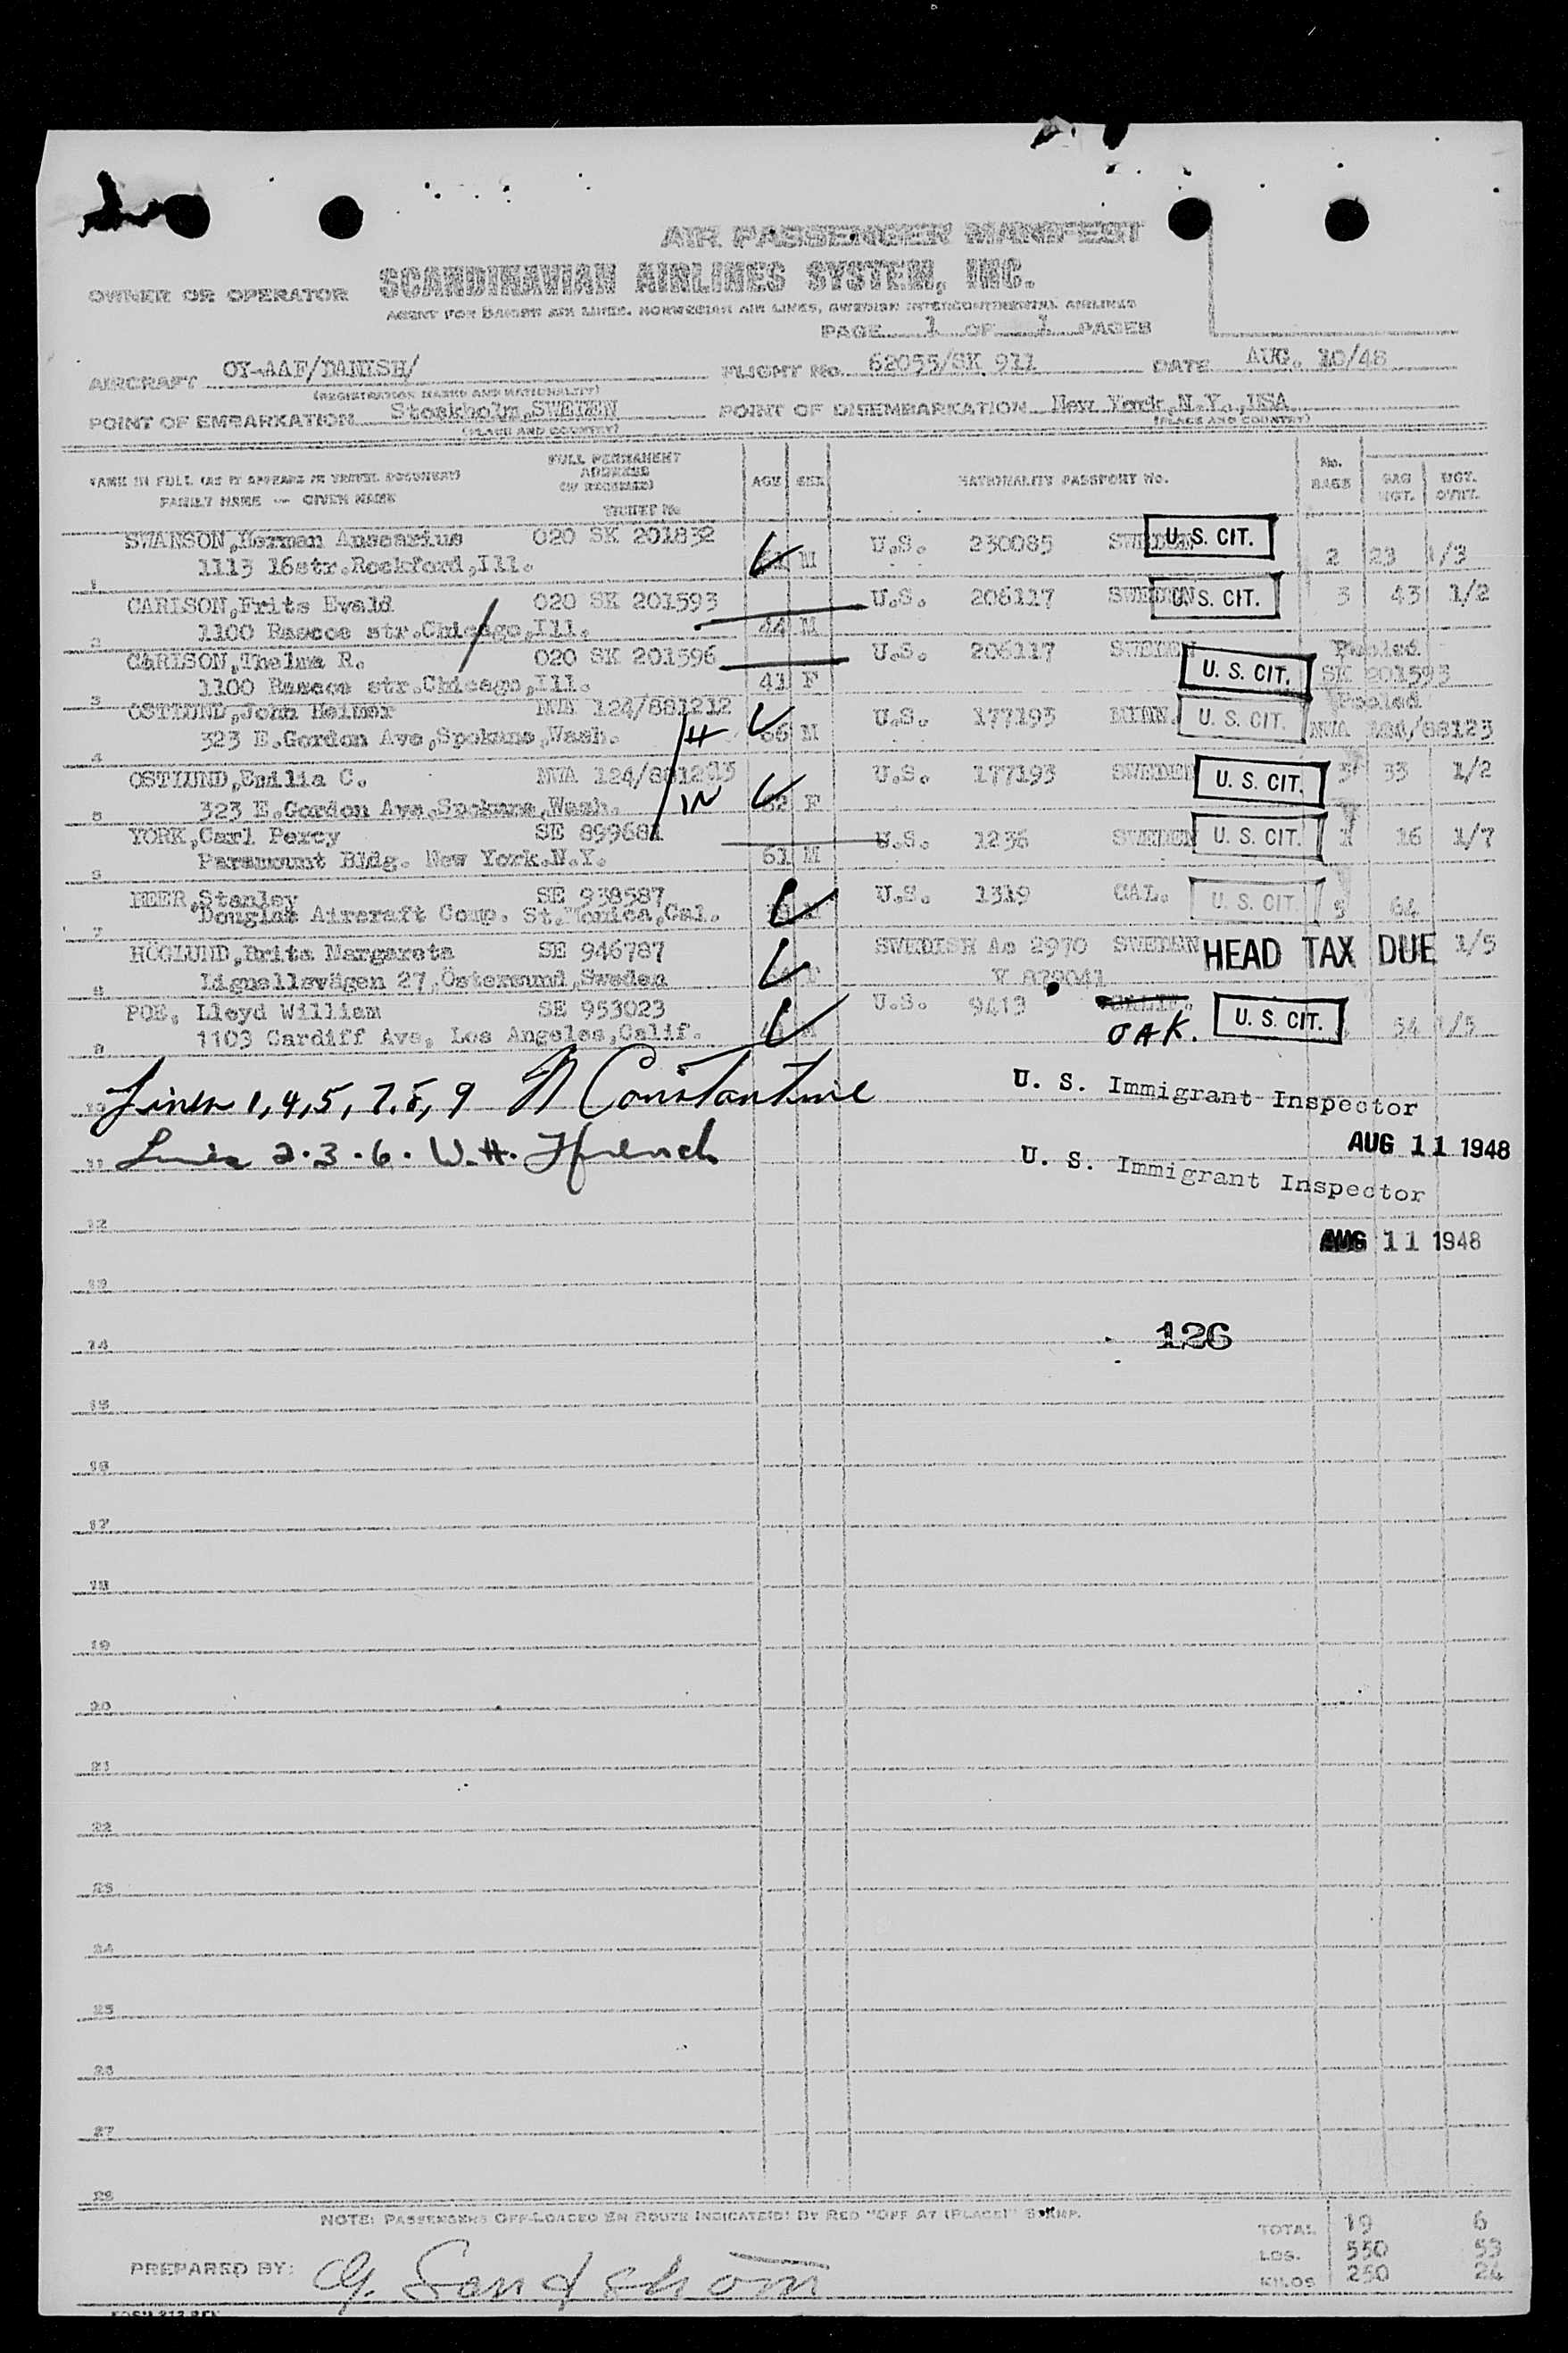 AIR PASSENGER MANIFEST
OWNER OR OPERATOR SCANDINAVIAN AIRLINES SYSTEM, INC.
AGENT FOR DANISH AIR LINES, NORWEGIAN AIR LINES, SWEDISH INTERCONTINENTAL AIRLINES
PAGE 1 OF 1 PAGES
AIRCRAFT OY-AAF/DANISH/ FLIGHT NO. 62055/SK 911 DATE AUG. 10/48
(REGISTRATION MARKS AND NATIONALITY)
POINT OF EMBARKATION Stockholm,SWEDEN POINT OF DISEMBARKATION New York,N.Y.,USA
(PLACE AND COUNTRY) (PLACE AND COUNTRY)
NAME IN FULL (AS IT APPEARS IN TRAVEL DOCUMENT) FULL PERMANENT ADDRESS (IF REQUIRED) AGE SEX NATIONALITY PASSPORT No. No. BAGS BAG WGT. WGT. OVWT.
FAMILY NAME — GIVEN NAME TICKET No
SWANSON,Herman Anscarius 020 SK 201832 U.S. 230085 SWEDEN U. S. CIT.
1 1113 16str.Rockford,Ill. M 2 23 1/3
CARLSON,Frits Evald 020 SK 201593 U.S. 206117 SWEDEN U. S. CIT. 3 43 1/2
2 1100 Bascoe str.Chicago,Ill. 44 M
CARLSON,Thelma R. 020 SK 201596 U.S. 206117 SWEDEN Pooled
3 1100 Bascoe str.Chicago,Ill. 41 F U. S. CIT. SK 201593
OSTLUND,John Helmer NWA 124/881212 U.S. 177193 MINN. U. S. CIT. Pooled
4 323 E.Gordon Ave,Spokane,Wash. H 66 M NWA 124/88123
OSTLUND,Emilia C. NWA 124/881213 U.S. 177193 SWEDEN U. S. CIT. 3 33 1/2
5 323 E.Gordon Ave,Spokane,Wash. W 62 F
YORK,Carl Percy SE 899681 U.S. 1236 SWEDEN U. S. CIT. 1 16 1/7
6 Paramount Bldg. New York.N.Y. 61 M
MEER,Stanley SE 938587 U.S. 1319 CAL. U. S. CIT. 64
7 Douglas Aircraft Comp. St.Monica,Cal.
HÖGLUND,Brita Margareta SE 946787 SWEDISH Ao 2970 SWEDEN HEAD TAX DUE 1/5
8 27,Östersund,Sweden F
POE, Lloyd William SE 953023 U.S. 9413 CALIF.
9 1103 Cardiff Ave, Los Angeles,Calif. OAK. U. S. CIT. 54 1/5
10 Lines 1,4,5,7,8,9 N Constantine U. S. Immigrant Inspector
AUG 11 1948
11 Lines 2.3.6. W.H. French U. S. Immigrant Inspector
12
AUG 11 1948
13
14 126
15
16
17
18
19
20
21
22
23
24
25
26
27
28
NOTE: PASSENGERS OFF-LOADED EN ROUTE INDICATED BY RED "OFF AT (PLACE)" STAMP.
TOTAL 19 6
LBS. 550 53
PREPARED BY: G. Sandström KILOS 250 24